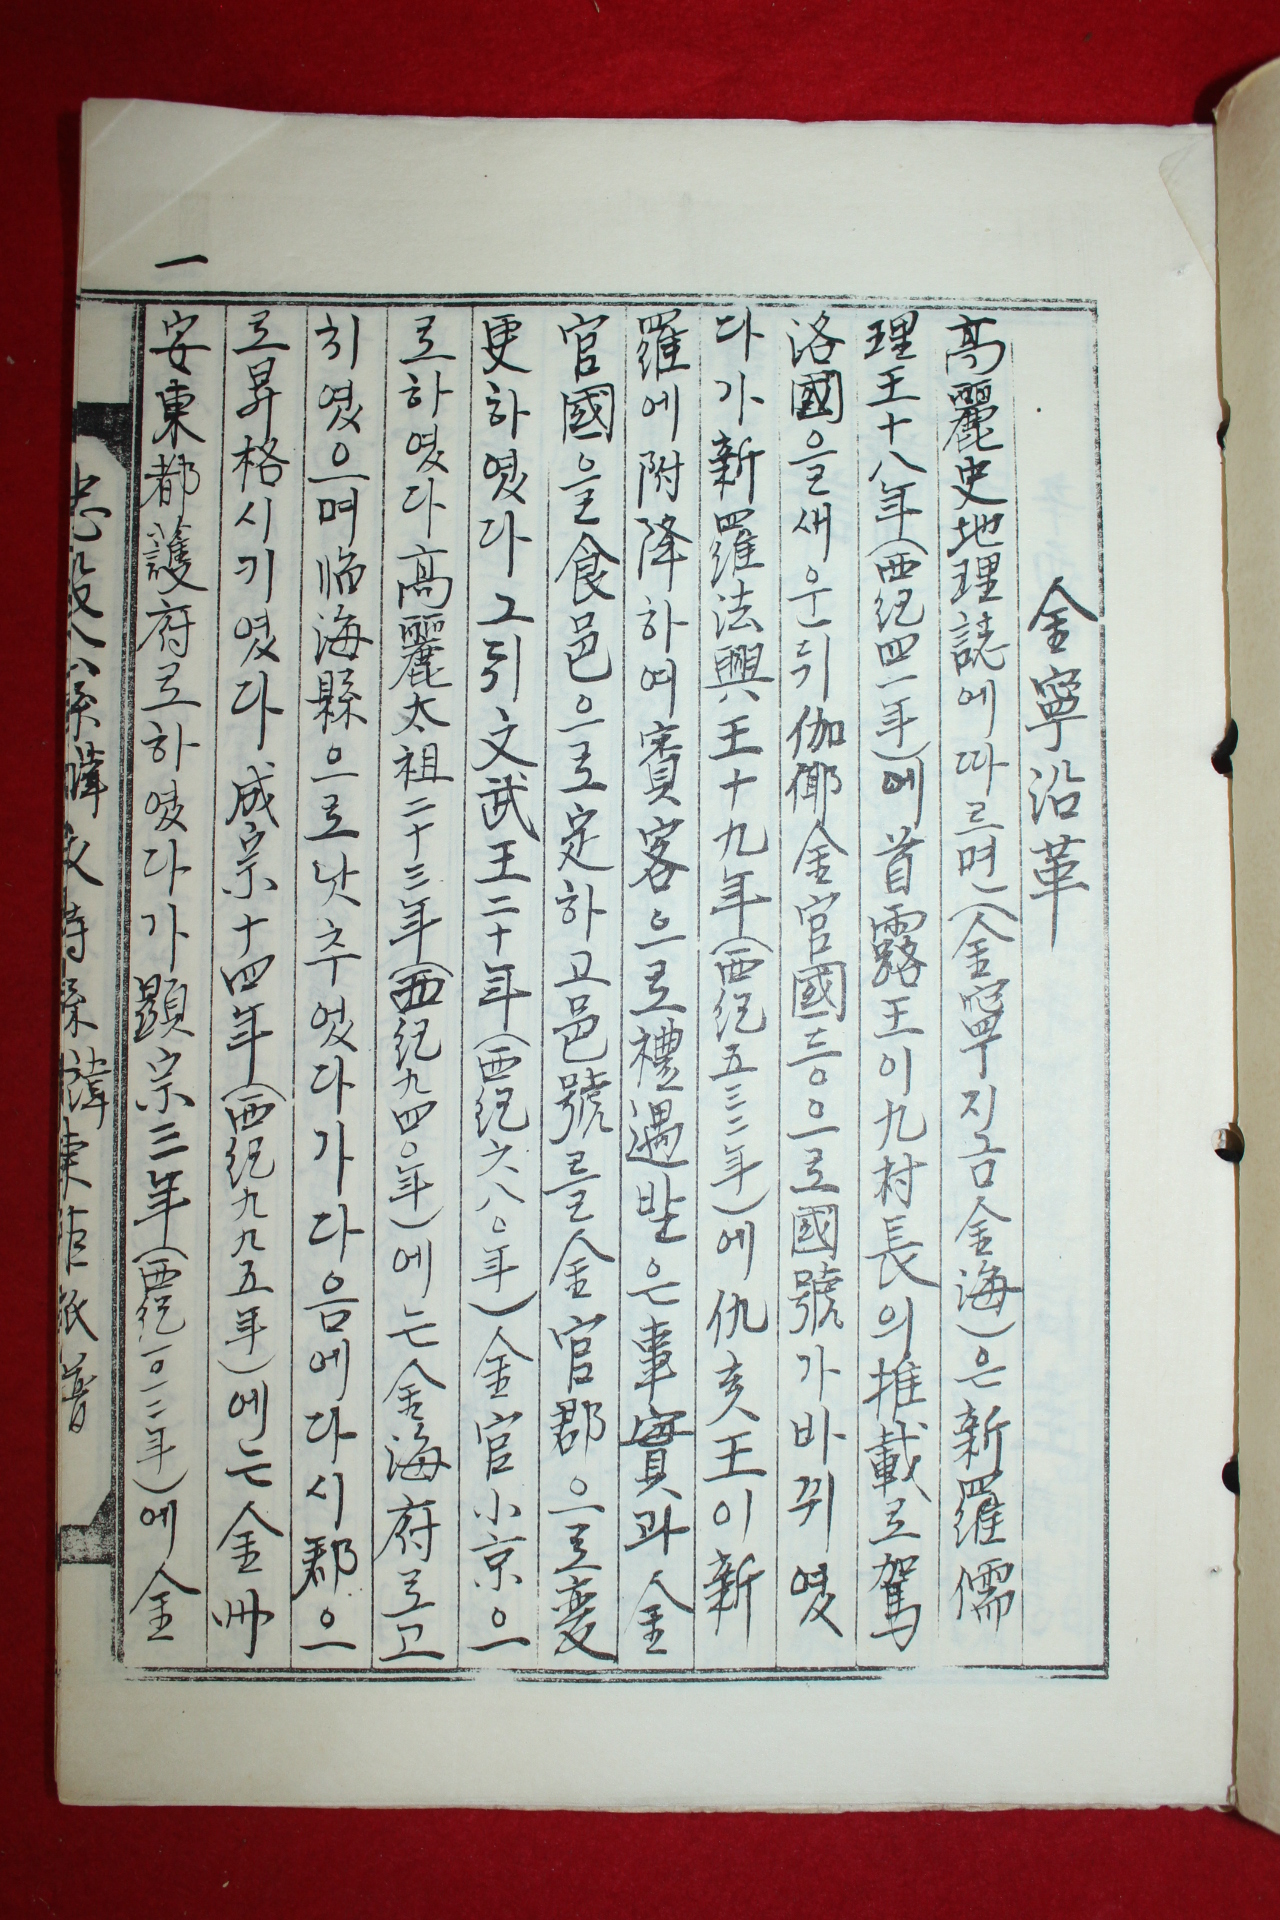 金寧沿革
高麗史地理誌에따르면(金寧지금金海)은新羅儒
理王十八年(西紀四一年)에首露王이九村長의推載로駕
洛國을새운뒤伽倻金官國등으로國號가바뀌였
다가新羅法興王十九年(西紀五三二年)에仇亥王이新
羅에附降하여賓客으로禮遇받은事實과金
官國을食邑으로定하고邑號를金官郡으로変
更하였다그뒤文武王二十年(西紀六八〇年)金官小京으
로하였다高麗太祖二十三年(西紀九四〇年)에는金海府로고
치였으며临海縣으로낫추였다가다음에다시郡으
로昇格시키였다成宗十四年(西紀九九五年)에는金州
安東都護府로하였다가顯宗三年(西紀一〇一二年)에金
一